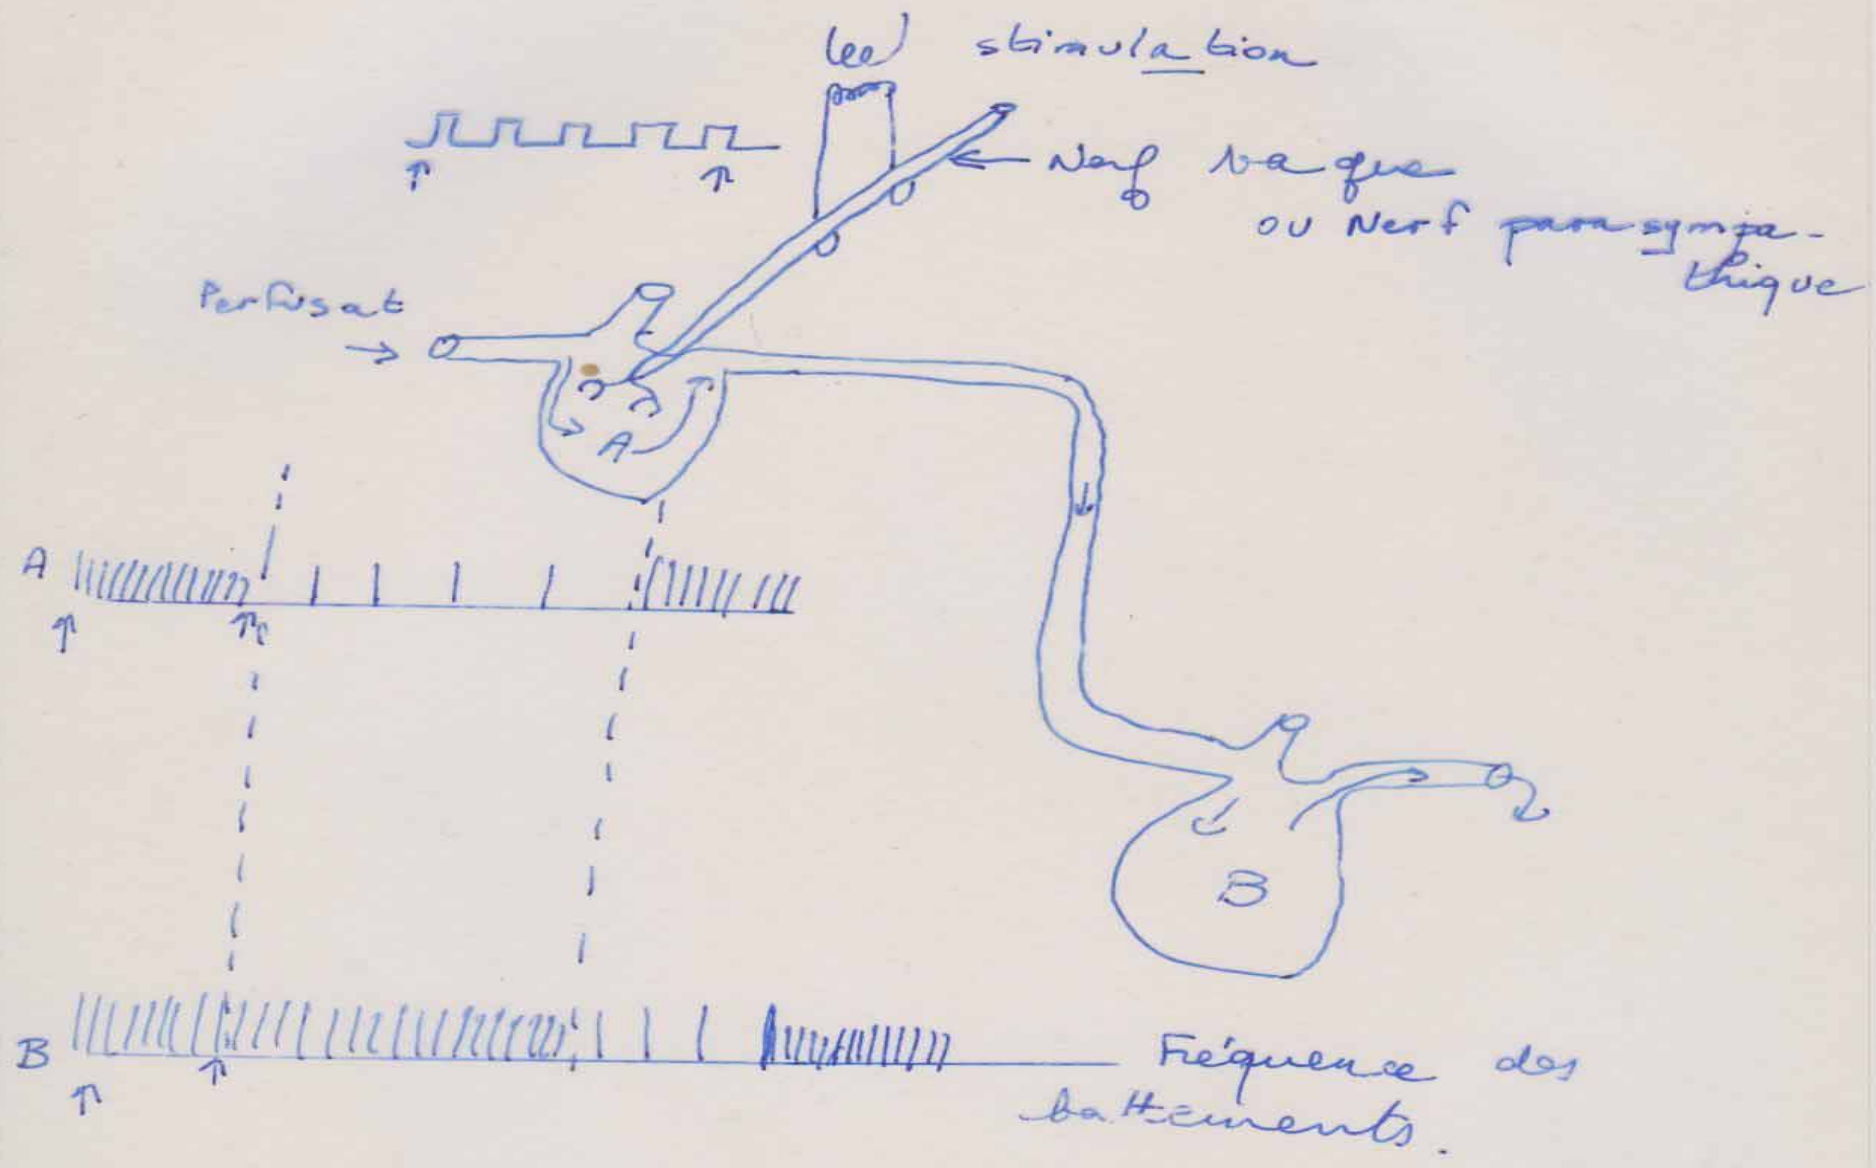 stimulation
Nerf vague
ou Nerf parasympa-
thique
Perfusat
A
A
B
B
Fréquence des
battements.